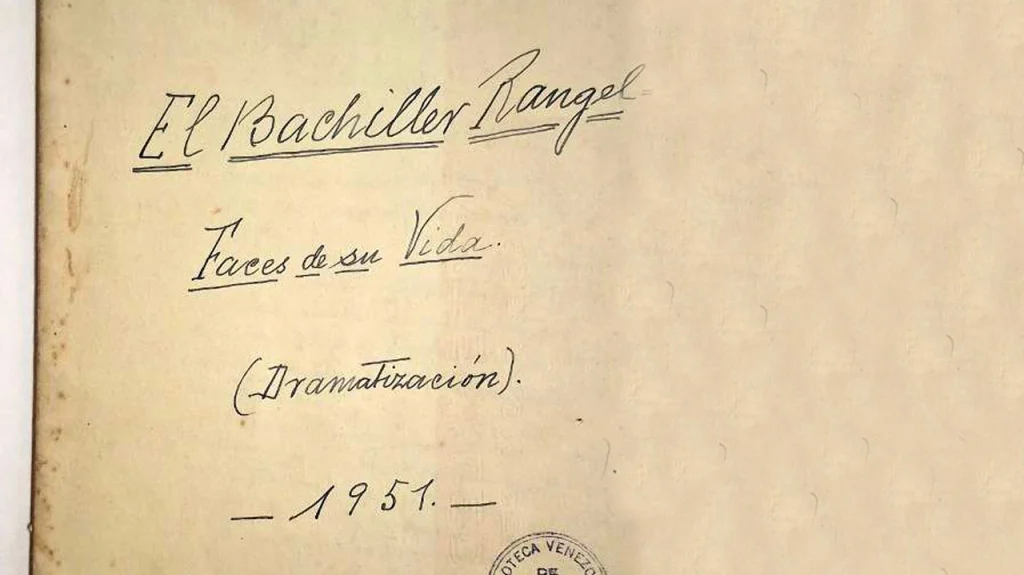 El Bachiller Rangel
Faces de su Vida.
(Dramatización).
— 1951. —
OTECA VENEZO
DE